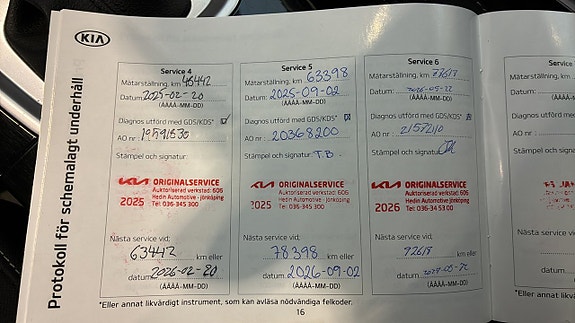 KIA
Protokoll för schemalagt underhåll
Service 4
Mätarställning, km 48442
Datum: 2025-02-20
(ÅÅÅÅ-MM-DD)
Diagnos utförd med GDS/KDS*
AO nr: 19591830
Stämpel och signatur:
KIA ORIGINALSERVICE
Auktoriserad verkstad: 606
2025 Hedin Automotive - Jönköping
Tel: 036-345 300
Nästa service vid:
63442 km eller
datum: 2026-02-20
(ÅÅÅÅ-MM-DD)
Service 5
Mätarställning, km 63398
Datum: 2025-09-02
(ÅÅÅÅ-MM-DD)
Diagnos utförd med GDS/KDS*
AO nr: 20368200
Stämpel och signatur: T.B.
KIA ORIGINALSERVICE
Auktoriserad verkstad: 606
2025 Hedin Automotive - Jönköping
Tel: 036-345 300
Nästa service vid:
78398 km eller
datum: 2026-09-02
(ÅÅÅÅ-MM-DD)
Service 6
Mätarställning, km 77617
Datum:
(ÅÅÅÅ-MM-DD)
Diagnos utförd med GDS/KDS*
AO nr: 21572110
Stämpel och signatur:
KIA ORIGINALSERVICE
Auktoriserad verkstad: 606
2026 Hedin Automotive - Jönköping
Tel: 036-34 53 00
Nästa service vid:
92617 km eller
datum:
(ÅÅÅÅ-MM-DD)
Mätarställning
Datum:
Diagnos utförd
AO nr:
Stämpel och
Nästa service
*Eller annat likvärdigt instrument, som kan avläsa nödvändiga felkoder.
16
*Eller annat